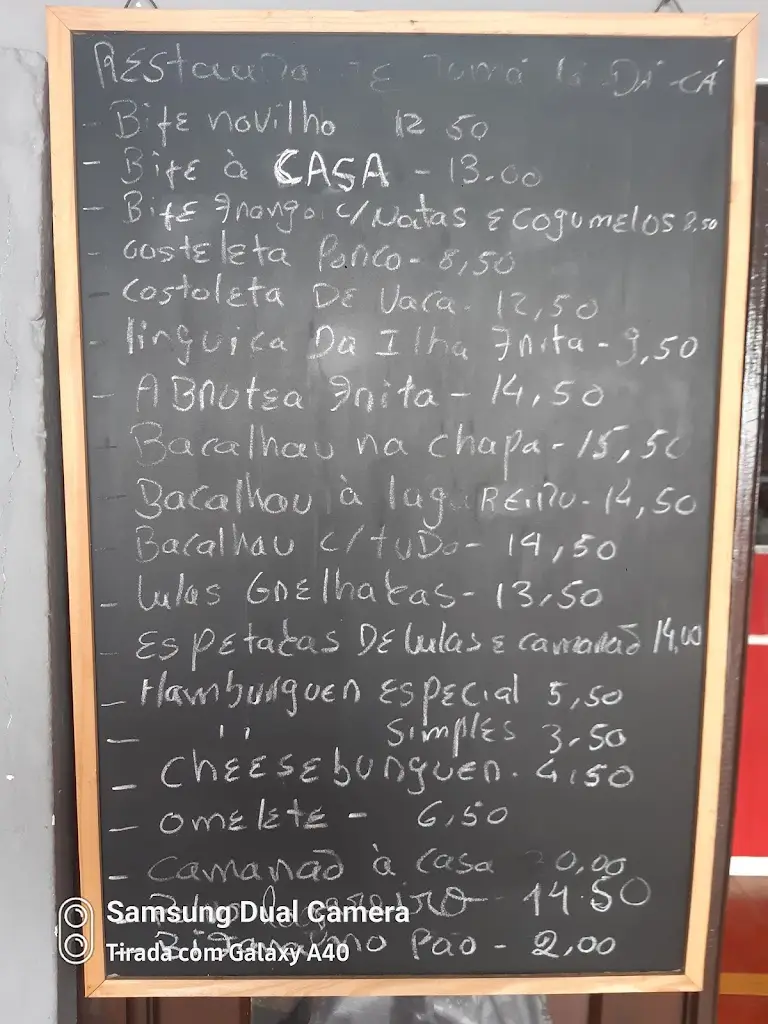 REstaura te Toma lá DÁ CÁ
- Bife novilho 12 50
- Bife à CASA - 13.00
- Bife Frango c/ Natas E cogumelos 8,50
- costeleta Porco - 8,50
- costoleta DE Vaca - 12,50
- linguiça Da Ilha Frita - 9,50
- ABROTEA Frita - 14,50
- Bacalhau na chapa - 15,50
- Bacalhau à lagAREIRO - 14,50
- Bacalhau c/ tuDo - 14,50
- lulas GrElhatas - 13,50
- EspEtatas DE lulas E camarão 14,00
- Hamburguer EspEcial 5,50
- '' SimplEs 3.50
- chEEsEburguer. 4,50
- omElEtE - 6,50
- camarão à casa 20,00
14.50
Samsung Dual Camera
- no Pão - 2,00
Tirada com Galaxy A40